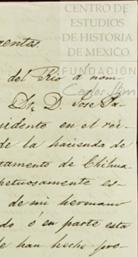 CENTRO DE
ESTUDIOS
DE HISTORIA
DE MEXICO
FUNDACIÓN
Carlos Slim
mentas,
del Rio a nom-
Sr. D. José
sidente en el
de la hacienda de
tamento de Chihua
petuosamente es-
de mi hermano
do ó en parte esta
e han hecho pro-